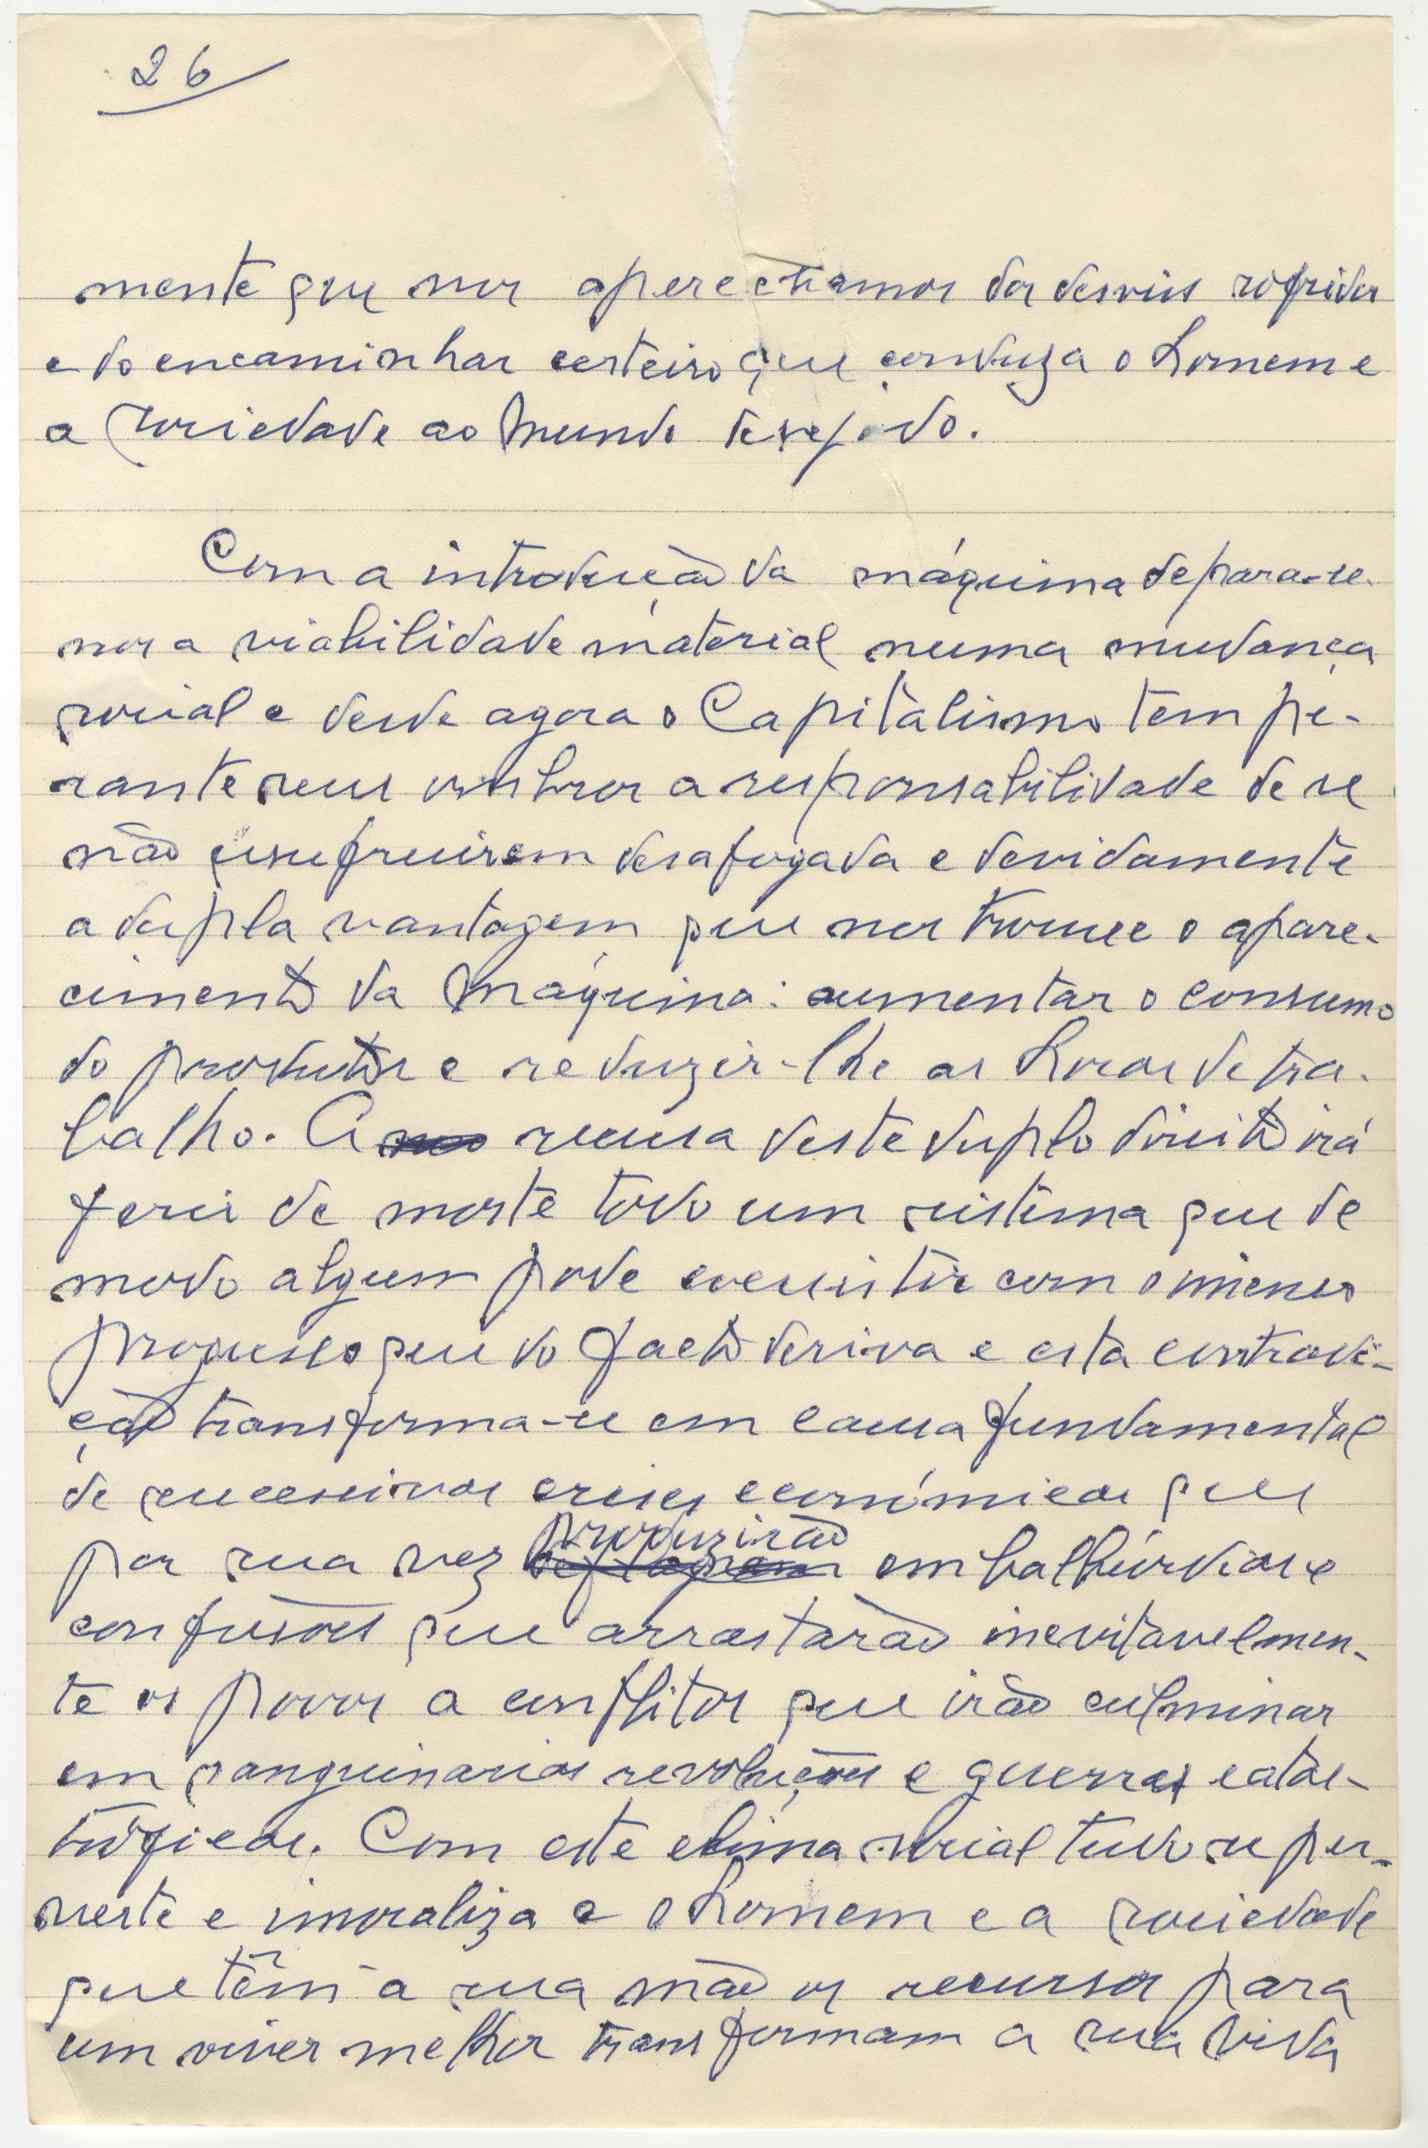 26
mente que nos apercebamos dos desvios sofridos
e do encaminhar certeiro que conduza o homem e
a sociedade ao mundo desejado.
Com a introdução da máquina depara-se-
nos a viabilidade material numa mudança
social e desde agora o Capitalismo tem pe-
rante seus ombros a responsabilidade de se
não usufruirem desafogada e devidamente
a dupla vantagem que nos trouxe o apare-
cimento da máquina: aumentar o consumo
do produtor e reduzir-lhe as horas de tra-
balho. A recusa deste duplo direito irá
ferir de morte todo um sistema que de
modo algum pode coexistir com o imenso
progresso que do facto deriva e esta contradi-
ção transforma-se em causa fundamental
de sucessivas crises económicas que
por sua vez produzirão embalbúrdias e
confusões que arrastarão inevitavelmen-
te os povos a conflitos que irão culminar
em sanguinarias revoluções e guerras catas-
tróficas. Com este clima social tudo se per-
verte e imoraliza e o homem e a sociedade
que têm à sua mão os recursos para
um viver melhor transformam a sua vida